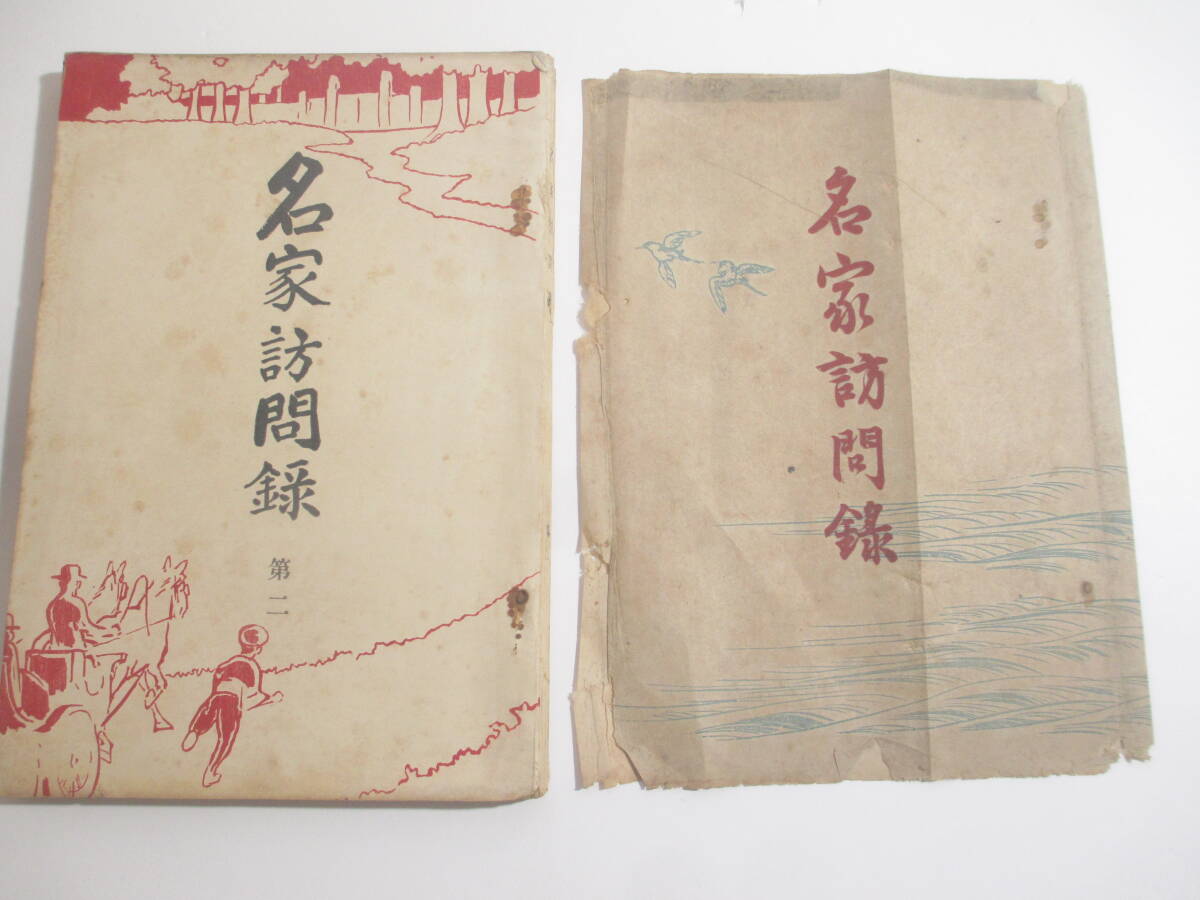 名家訪問録
第二
名家訪問錄